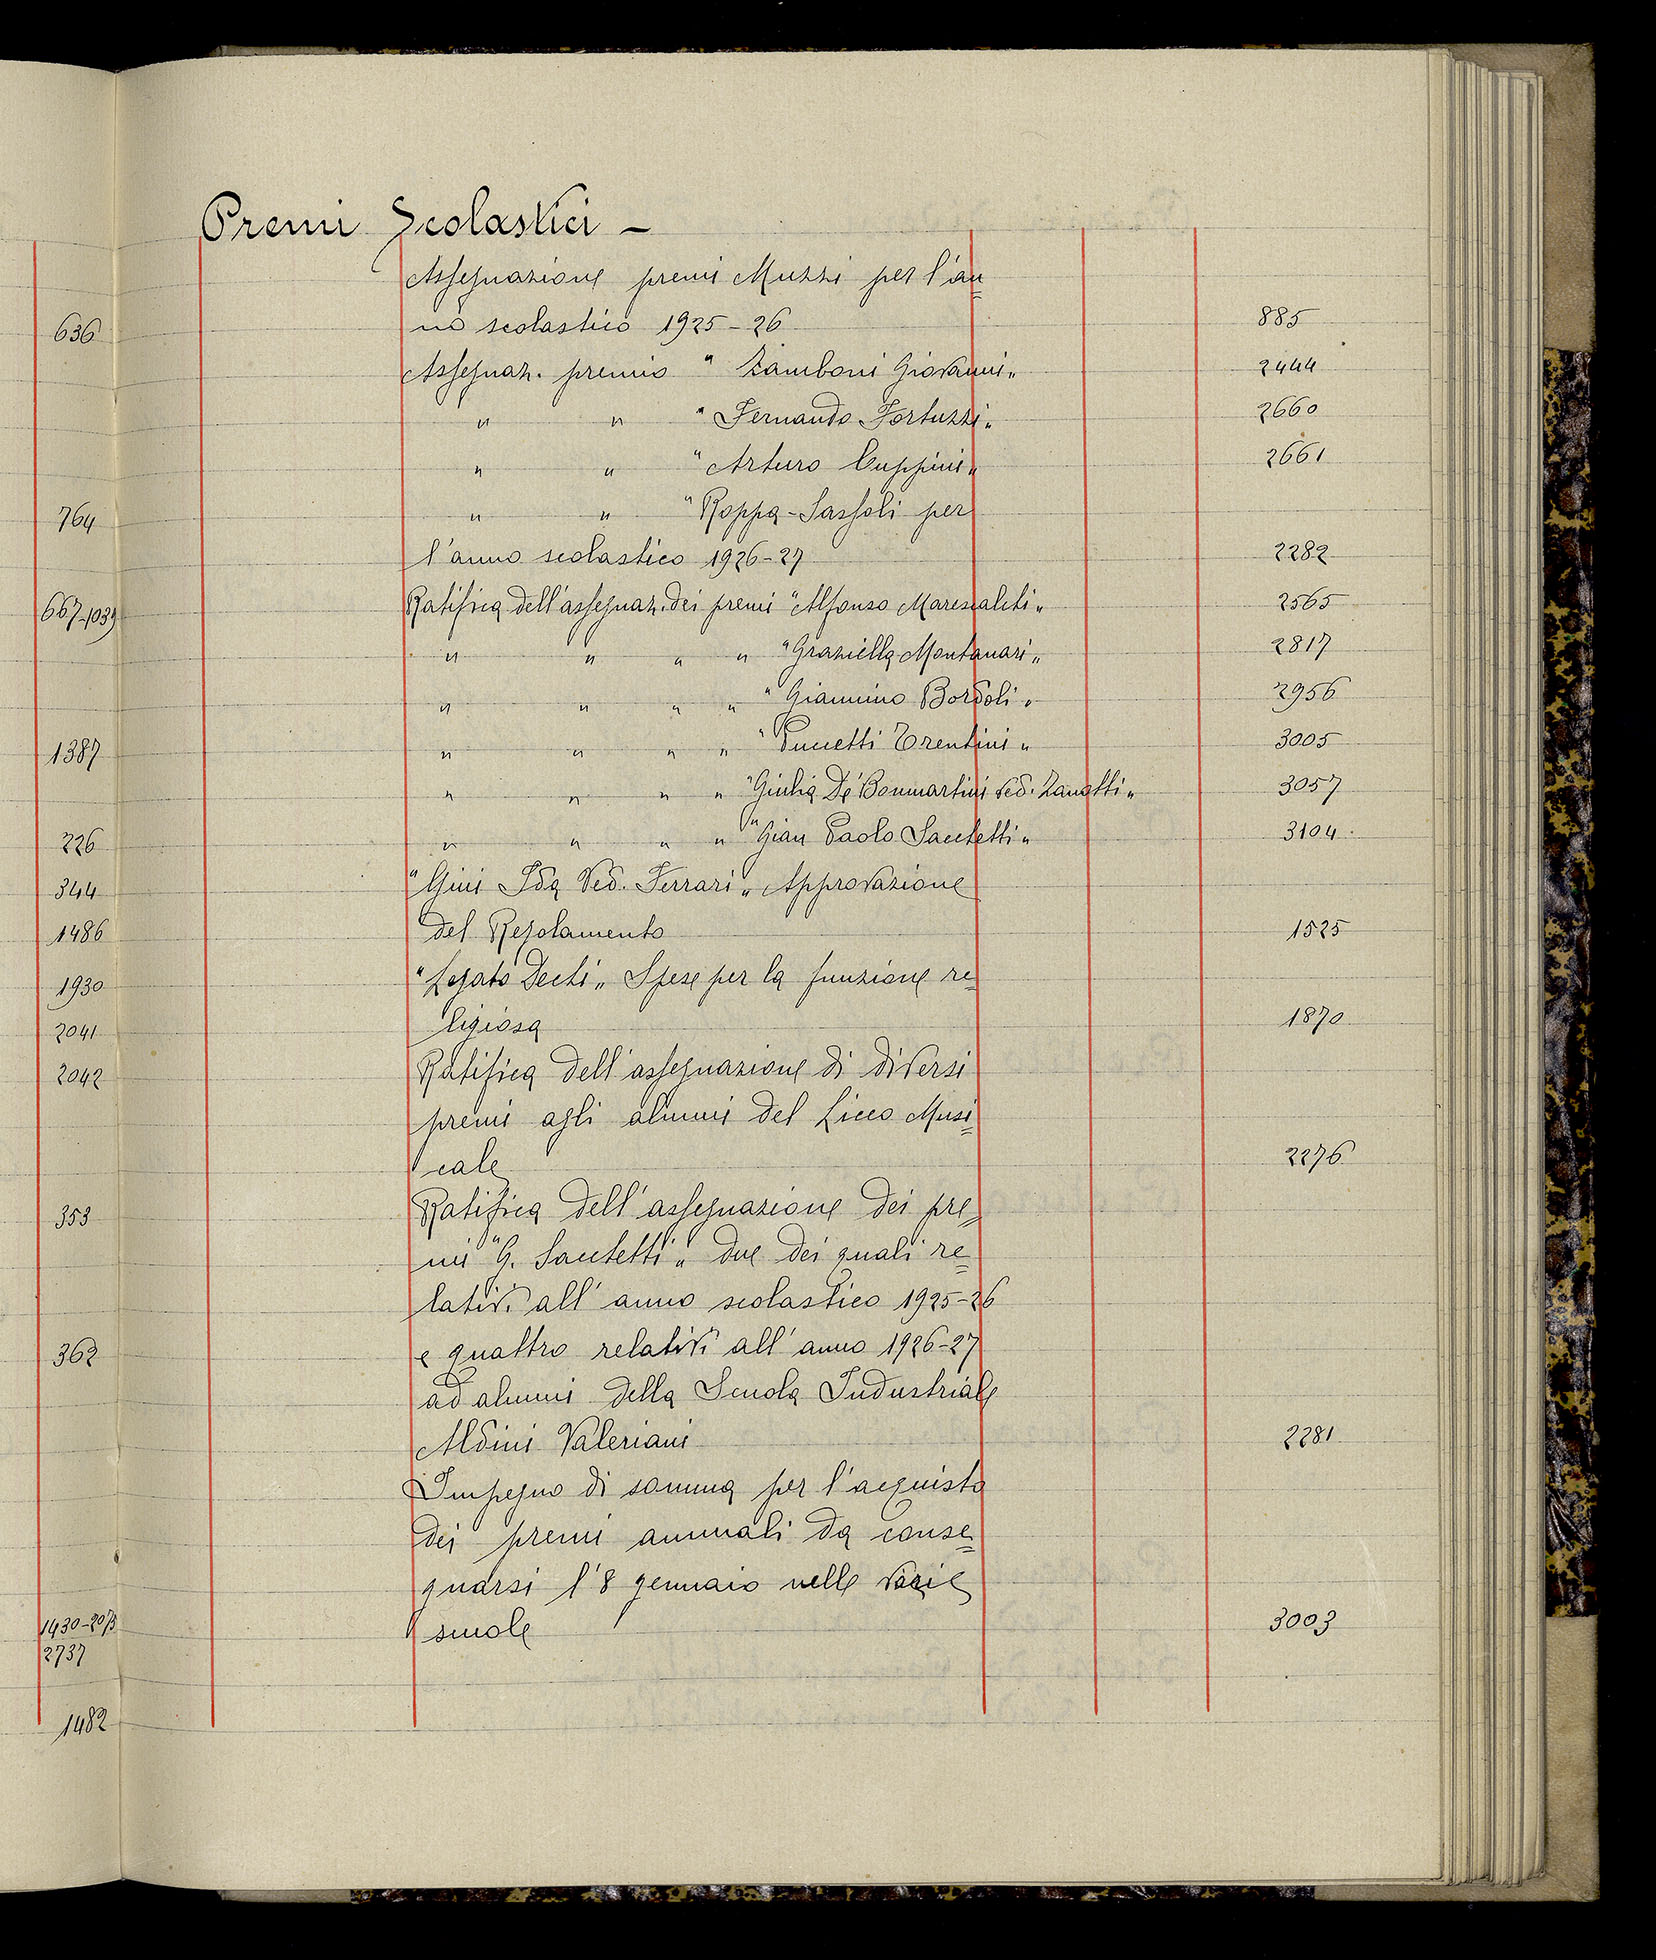 636
764
667-1039
1387
226
344
1486
1930
2041
2042
353
362
1430-2073
2737
1482
Premi Scolastici –
Assegnazione premi Muzzi per l'an=
no scolastico 1925-26 885
Assegnaz. premio " Zamboni Giovanni„ 2444
" " " Fernando Fortuzzi„ 2660
" " " Arturo Cuppini„ 2661
" " " Roppa-Sassoli per
l'anno scolastico 1926-27 2282
Ratifica dell'assegnaz. dei premi "Alfonso Marescalchi„ 2565
" " " " "Graziella Montanari„ 2817
" " " " "Giannino Bordoli„ 2956
" " " " "Puccetti Trentini„ 3005
" " " " "Giulia De' Bonmartini ved. Zanotti„ 3057
" " " " "Gian Paolo Sacchetti„ 3104
"Gini Ida Ved. Ferrari„ Approvazione
del Regolamento 1525
"Legato Dechi„ Spese per la funzione re=
ligiosa 1870
Ratifica dell'assegnazione di diversi
premi agli alunni del Liceo Musi=
cale 2276
Ratifica dell'assegnazione dei pre=
mi "G. Sacchetti„ due dei quali re=
lativi all'anno scolastico 1925-26
e quattro relativi all'anno 1926-27
ad alunni della Scuola Industriale
Aldini Valeriani 2281
Impegno di somma per l'acquisto
dei premi annuali da conse=
gnarsi l'8 gennaio nelle varie
scuole 3003